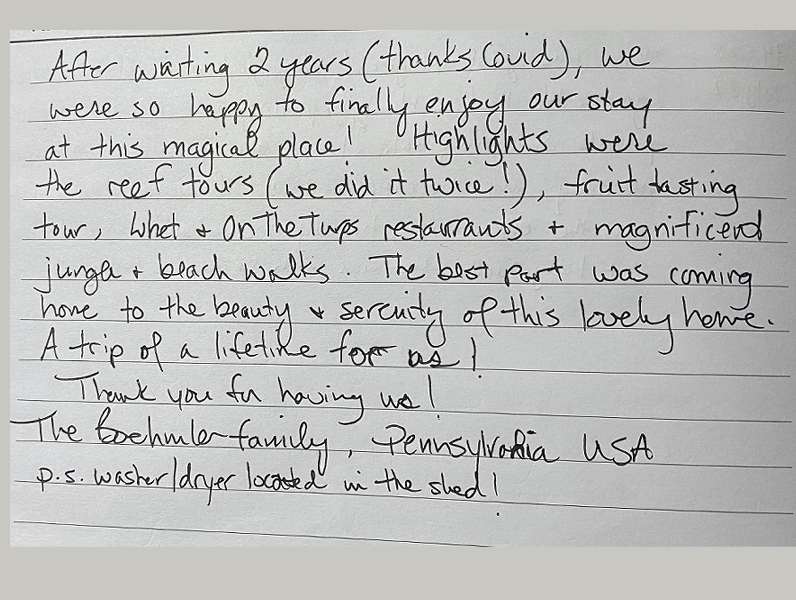 After waiting 2 years (thanks Covid), we
were so happy to finally enjoy our stay
at this magical place! Highlights were
the reef tours (we did it twice!), fruit tasting
tour, Whet + OnTheTurps restaurants + magnificent
jungle + beach walks. The best part was coming
home to the beauty + serenity of this lovely home.
A trip of a lifetime for us!
Thank you for having us!
The Boehmler family, Pennsylvania USA
p.s. washer/dryer located in the shed!